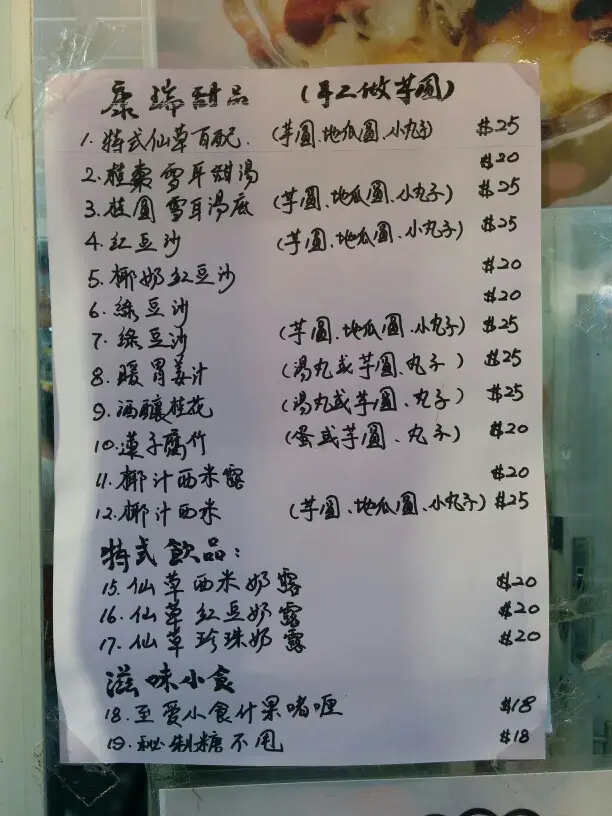 康瑞甜品 (手工做芋圆)
1. 特式仙草百配. (芋圆、地瓜圆、小丸子) $25
2. 桂棗雪耳甜湯 $20
3. 桂圆雪耳湯底 (芋圆、地瓜圆、小丸子) $25
4. 红豆沙 (芋圆、地瓜圆、小丸子) $25
5. 椰奶红豆沙 $20
6. 绿豆沙 $20
7. 绿豆沙 (芋圆、地瓜圆、小丸子) $25
8. 暖胃姜汁 (湯丸或芋圆、丸子) $25
9. 酒釀桂花 (湯丸或芋圆、丸子) $25
10. 蓮子腐竹 (蛋或芋圆、丸子) $20
11. 椰汁西米露 $20
12. 椰汁西米 (芋圆、地瓜圆、小丸子) $25
特式飲品:
15. 仙草西米奶露 $20
16. 仙草红豆奶露 $20
17. 仙草珍珠奶露 $20
滋味小食
18. 至爱小食什果啫喱 $18
19. 秘制糖不甩 $18